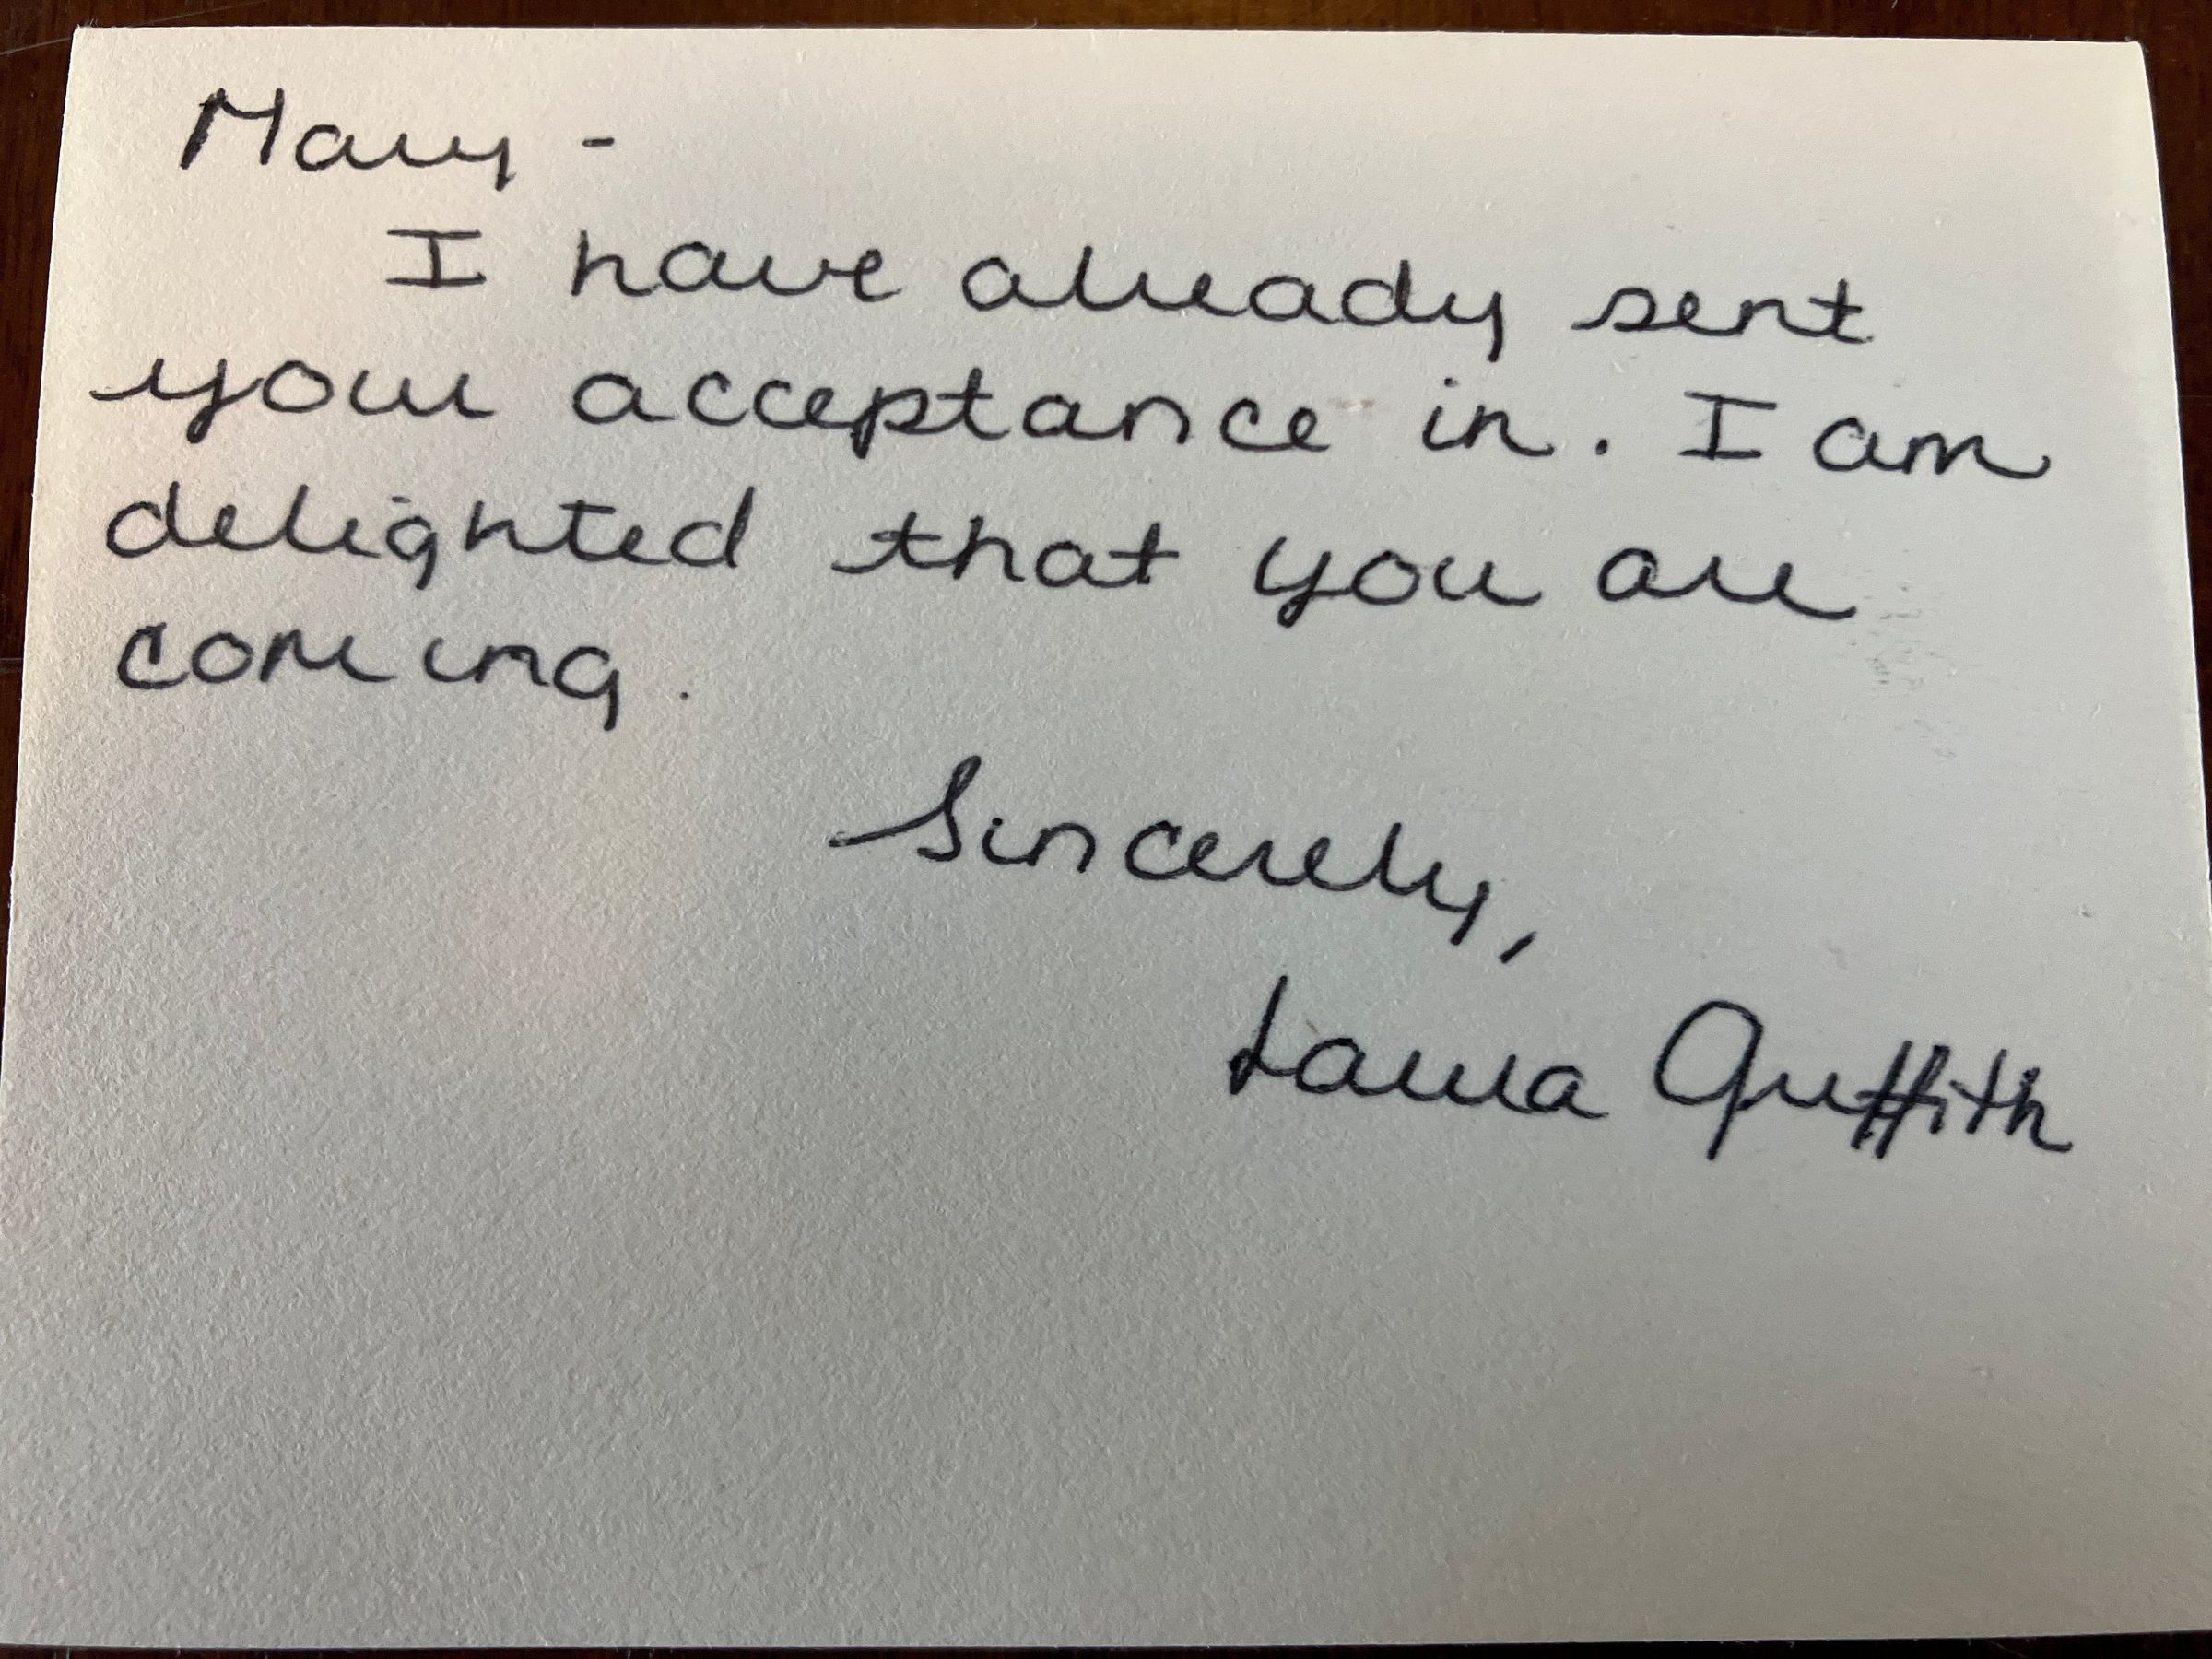 Mary -
I have already sent
your acceptance in. I am
delighted that you are
coming.
Sincerely,
Laura Griffith